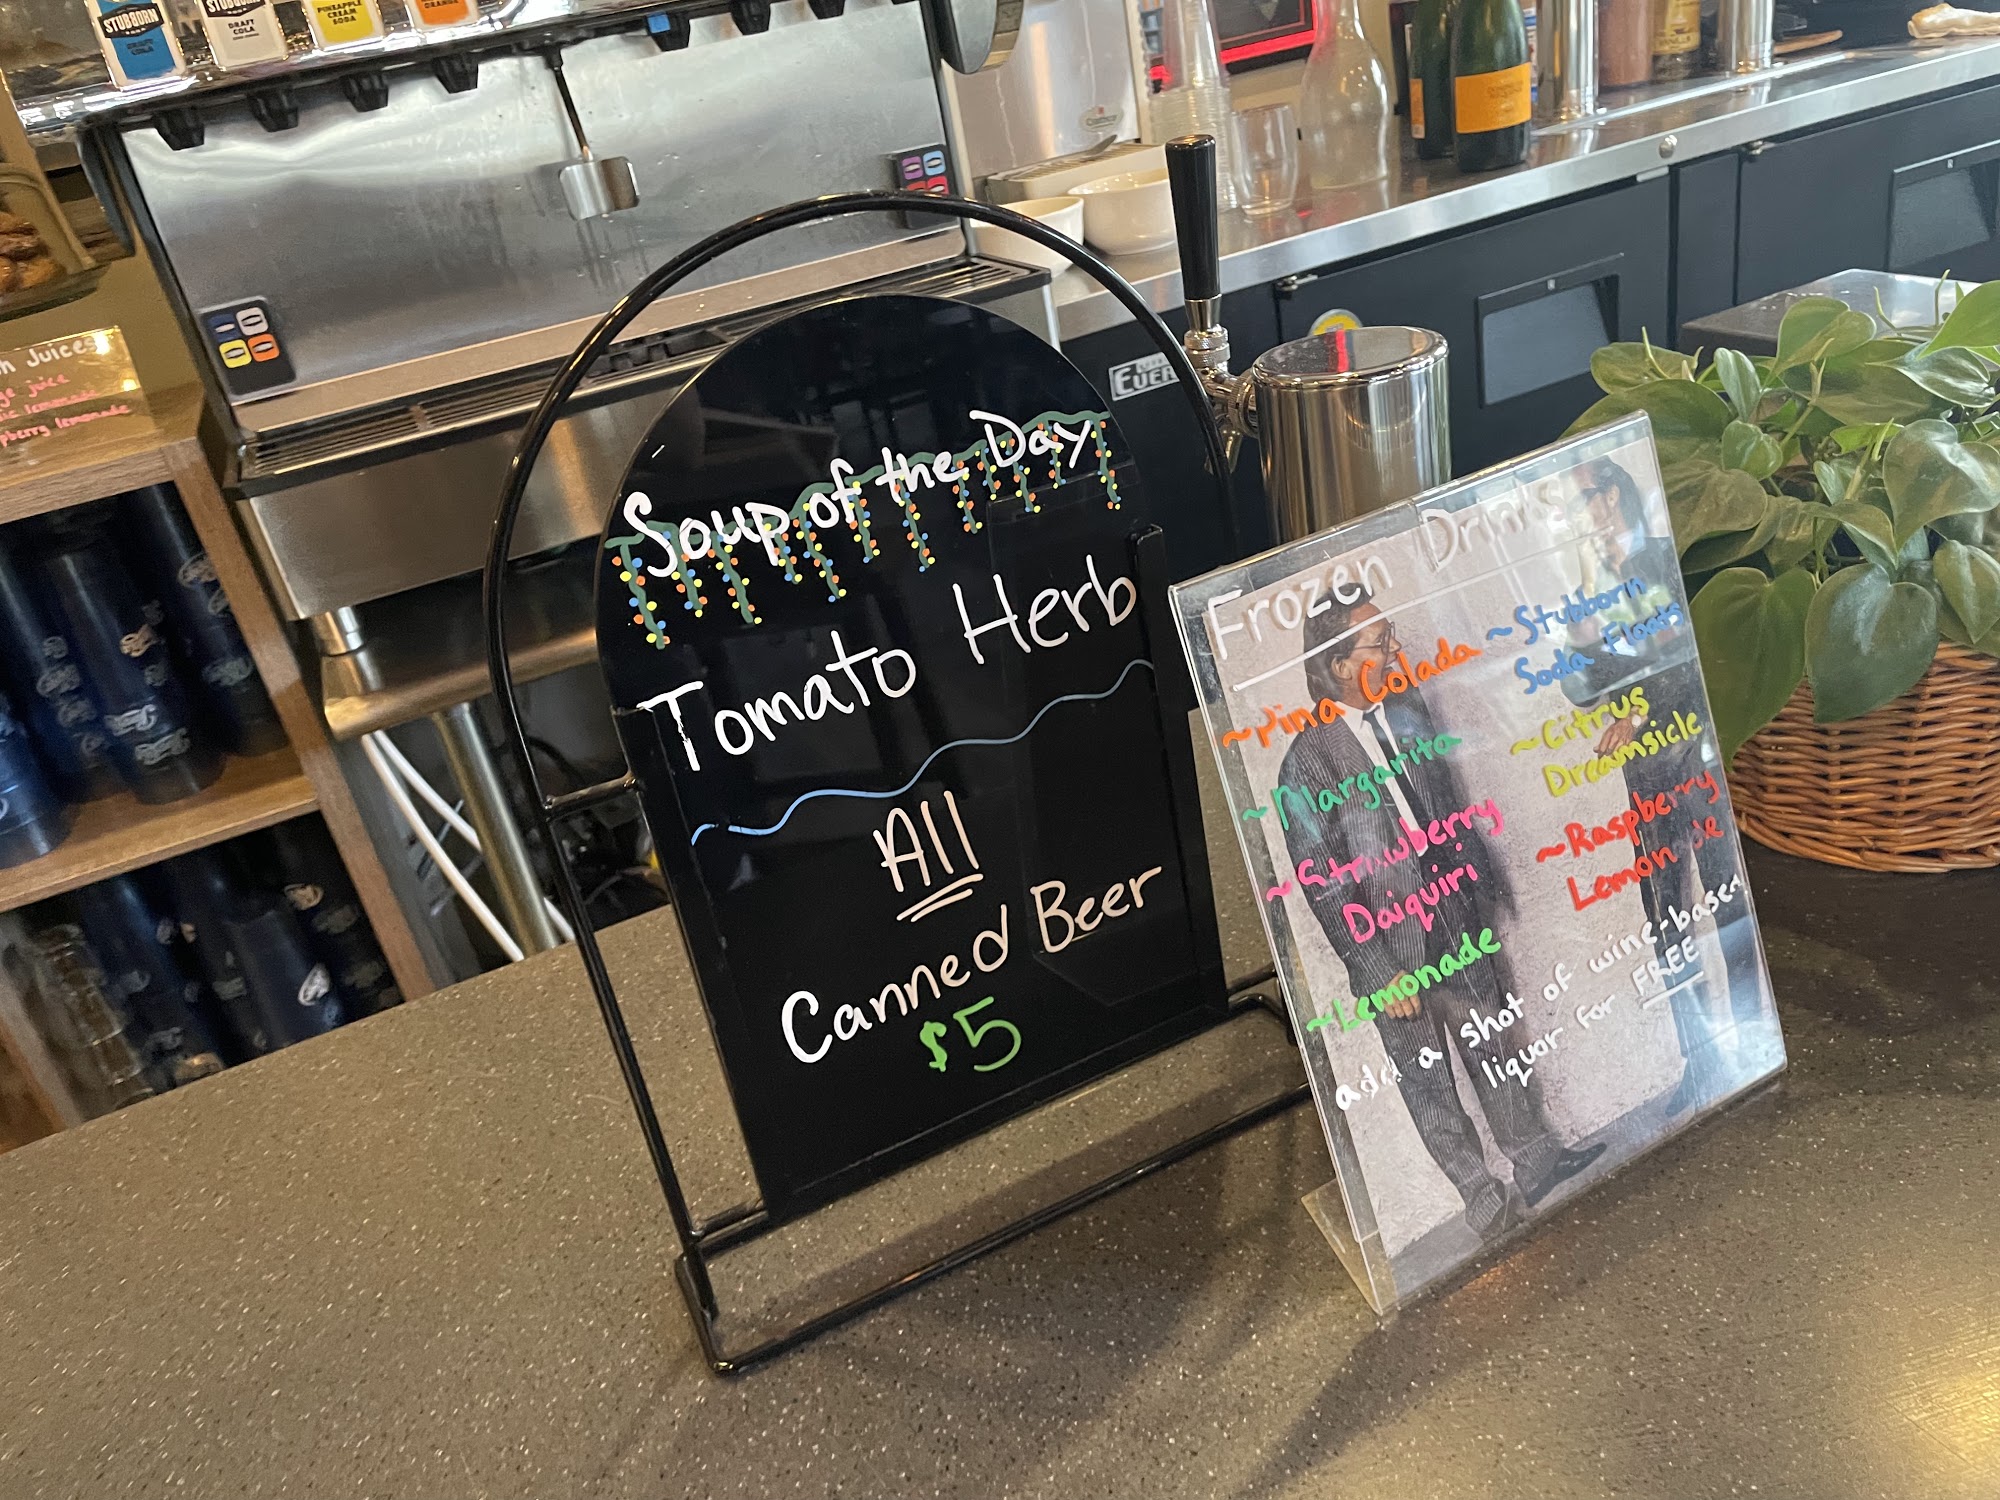 STUBBORN
DRAFT
COLA
STUBBORN
DRAFT
COLA
PINEAPPLE
CREAM
SODA
Juices
juice
lemonade
lemonade
Soup of the Day
Tomato Herb
All
Canned Beer
$5
Frozen Drinks
~Pina Colada
~Margarita
~Strawberry
Daiquiri
~Lemonade
~Stubborn
Soda Floats
~Citrus
Dreamsicle
~Raspberry
Lemonade
add a shot of wine-based
liquor for FREE